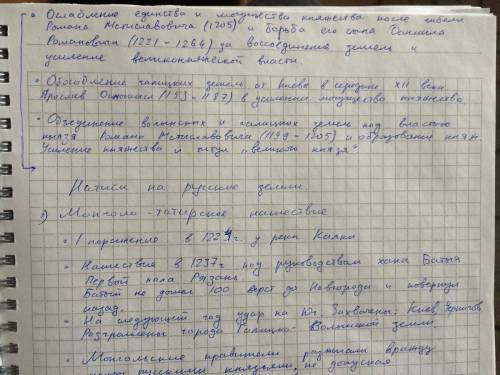 • Ослабление единства и могущества княжества после гибели
Романа Мстиславовича (1205) и борьба его сына Даниила
Романовича (1221 - 1264) за воссоединение земель и
усиление великокняжеской власти
• Обособление галицких земель от Киева в середине XII века
Ярослав Осмомысл (1153 - 1187) в усиление могущества княжества
• Объединение волынских и галицких земель под властью
князя Романа Мстиславовича (1199 - 1205) и образование княж.
Усиление княжества и титул "великого князя"
Натиск на русские земли.
1) Монголо-татарское нашествие
• 1 поражение в 1223г. у реки Калки
• Нашествие в 1237г. под руководством хана Батыя
Первой пала Рязань
Батый не дошел 100 верст до Новгорода и повернул
назад.
• На следующей год удар на Юг. Захвачены: Киев, Чернигов
Разгромлены города Галицко-Волынской земли
• Монгольские правители разжигали вражду
между русскими князьями, не допуская